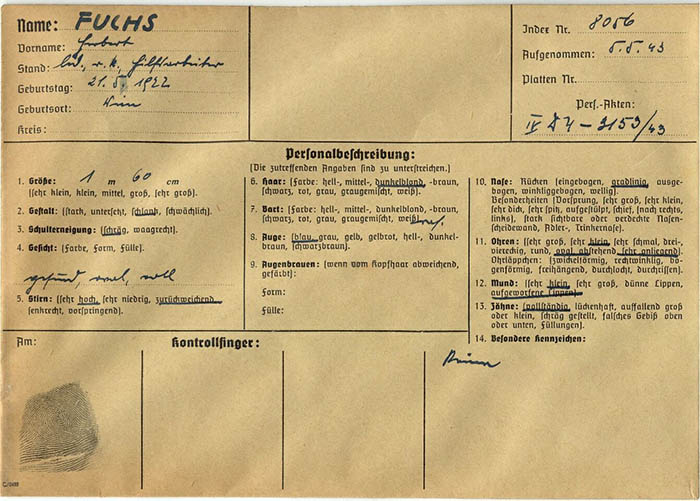 Name: FUCHS
Vorname: Herbert
Stand: led., r. k., Hilfsarbeiter
Geburtstag: 21. 5. 1922
Geburtsort: Wien
Kreis:
Index Nr. 8056
Aufgenommen: 5.5.43
Platten Nr.
Pers.-Akten:
IV D 4 - 3153/43
Personalbeschreibung:
(Die zutreffenden Angaben sind zu unterstreichen.)
1. Größe: 1 m 60 cm
(sehr klein, klein, mittel, groß, sehr groß).
2. Gestalt: (stark, untersetzt, schlank, schwächlich).
3. Schulterneigung: (schräg, waagrecht).
4. Gesicht: (Farbe, Form, Fülle).
gesund, oval, voll
5. Stirn: (sehr hoch, sehr niedrig, zurückweichend,
senkrecht, vorspringend).
6. Haar: (Farbe: hell-, mittel-, dunkelblond, -braun,
schwarz, rot, grau, graugemischt, weiß).
7. Bart: (Farbe: hell-, mittel-, dunkelblond, -braun,
schwarz, rot, grau, graugemischt, weiß)
8. Auge: (blau, grau, gelb, gelbrot, hell-, dunkel-
braun, schwarzbraun).
9. Augenbrauen: (wenn vom Kopfhaar abweichend,
gefärbt):
Form:
Fülle:
10. Nase: Rücken (eingebogen, gradlinig, ausge-
bogen, winkliggebogen, wellig).
Besonderheiten (Vorsprung, sehr groß, sehr klein,
sehr dick, sehr spitz, aufgestülpt, schief, [nach rechts,
links], stark sichtbare oder verdeckte Nasen-
scheidewand, Adler-, Trinkernase).
11. Ohren: (sehr groß, sehr klein, sehr schmal, drei-,
viereckig, rund, oval abstehend, sehr anliegend).
Ohrläppchen: (zwickelförmig, rechtwinklig, bo-
genförmig, freihängend, durchlocht, durchrissen).
12. Mund: (sehr klein, sehr groß, dünne Lippen,
aufgeworfene Lippen).
13. Zähne: (vollständig, lückenhaft, auffallend groß
oder klein, schräg gestellt, falsches Gebiß oben
oder unten, Füllungen).
14. Besondere Kennzeichen:
Am:
Kontrollfinger: